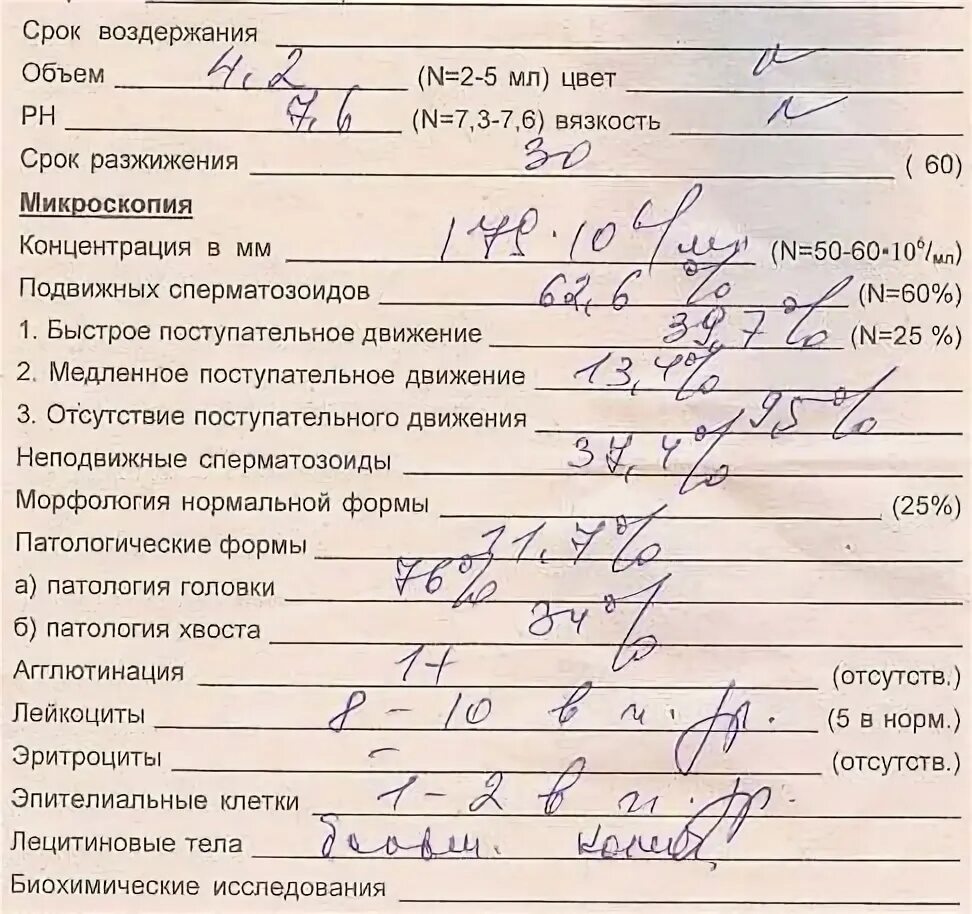 Срок воздержания
Объем 4,2 (N=2-5 мл) цвет N
РН 7,6 (N=7,3-7,6) вязкость N
Срок разжижения 30 ( 60)
Микроскопия
Концентрация в мм 179·10⁶/мл (N=50-60•10⁶/мл)
Подвижных сперматозоидов 62,6 % (N=60%)
1. Быстрое поступательное движение 39,7% (N=25 %)
2. Медленное поступательное движение 13,4%
3. Отсутствие поступательного движения 9,5%
Неподвижные сперматозоиды 37,4%
Морфология нормальной формы (25%)
Патологические формы 1,7%
а) патология головки 76%
б) патология хвоста 34%
Агглютинация 1+ (отсутств.)
Лейкоциты 8 – 10 в п. зр. (5 в норм.)
Эритроциты – (отсутств.)
Эпителиальные клетки 1 – 2 в п. зр.
Лецитиновые тела
Биохимические исследования